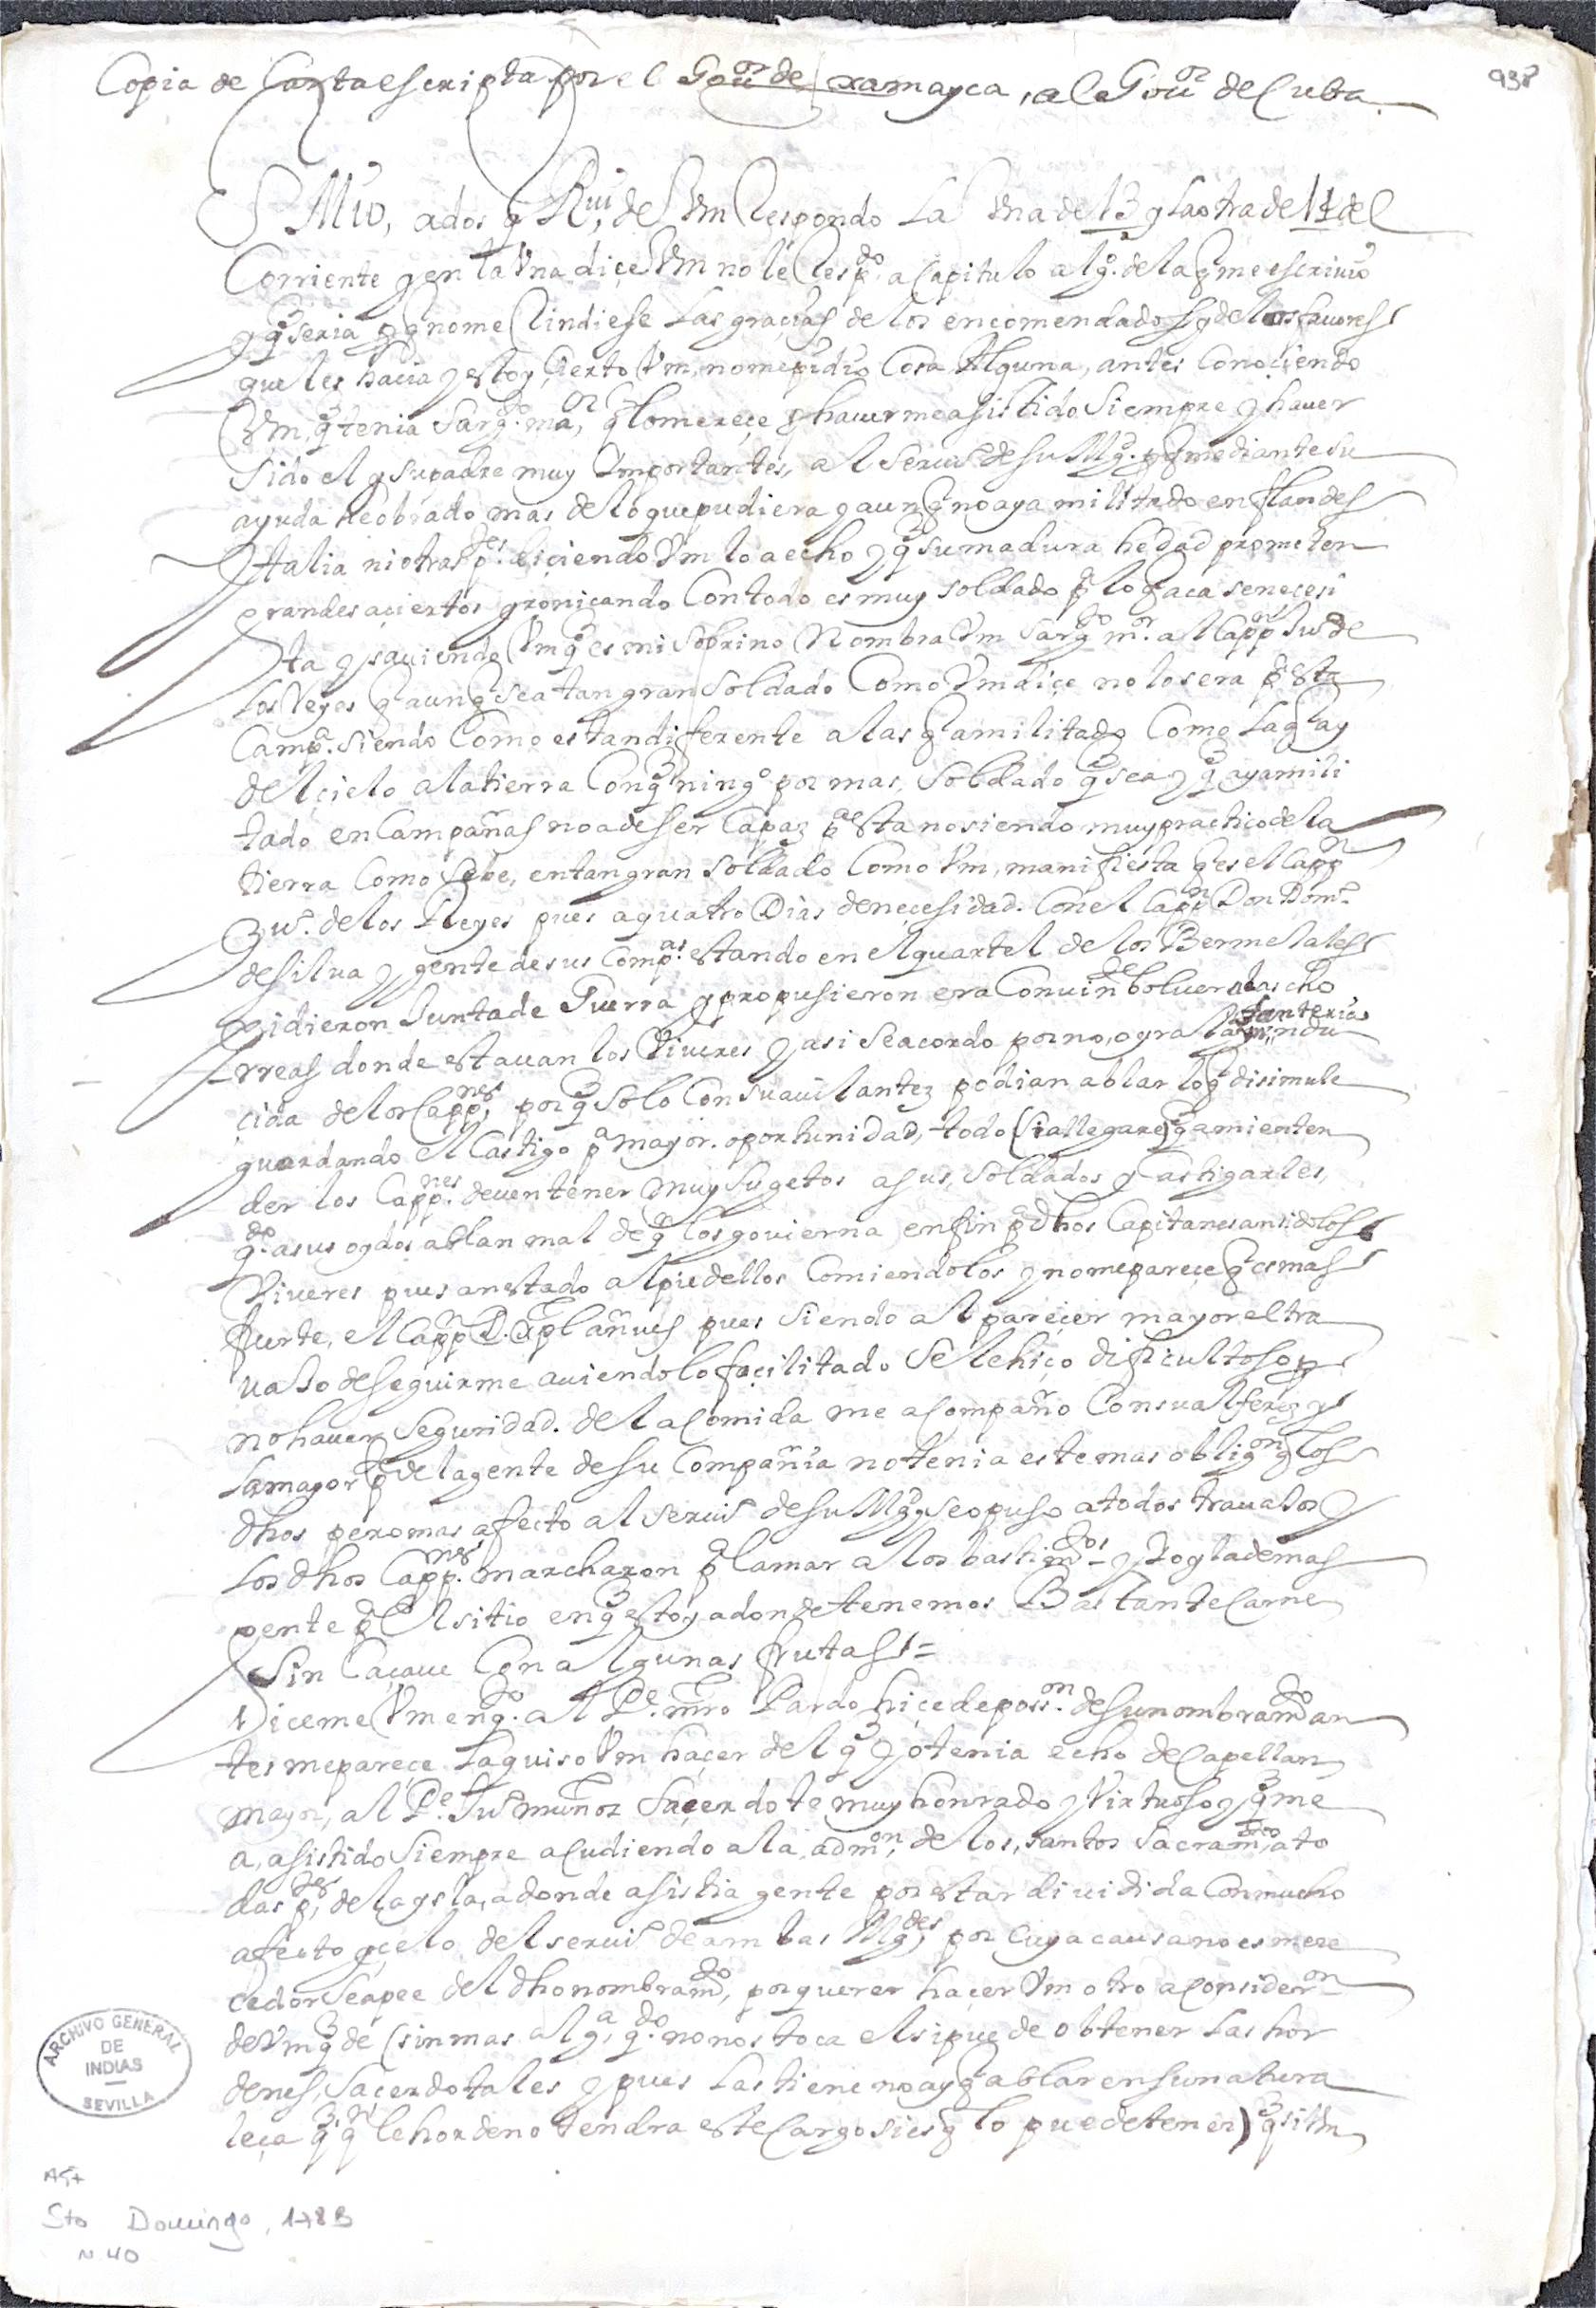 Copia de Carta escripta por el Gou.or de xamayca, al Gou.or de Cuba
938
S Mio, a dos q Rui, de Vm Respondo La Vna de 13 y La otra de 14 del
Corriente y en la Vna diçe Vm no le Resp.do a Capitulo alg.o de la q me escriuio
y q seria pq no me Rindiese Las graçias de los encomendados y de los fauores
que les hacia y estoy Cierto Vm, no me pidio Cosa Alguna, antes Conoçiendo
Vm, q tenia Sarg.to ma.or, q lo mereçe p hauerme asistido Siempre y hauer
Sido el y su padre muy Ymportantes, al Seruiº de su Mg.d pq mediante su
ayuda he obrado mas de lo que pudiera y aunq no aya militado en flandes
Ytalia ni otras p.tes diçiendo Vm lo a echo y q su madura hedad prometen
grandes açiertos y ronicando Con todo es muy soldado p lo q aca se neçesi
ta y sauiendo Vm q es mi Sobrino Nombra Vm Sarg.to m.or al Capp.n Juº de
Los Reyes q aunq sea tan gran Soldado Como Vm diçe no lo sera p.a esta
Camp.a siendo Como es tan diferente a las q a militado Como La q ay
del çielo a la tierra Con q ning.o por mas, Soldado q sea y q aya mili
tado en Campañas no a de ser Capaz p.a esta no siendo muy practico de la
tierra Como Sebe, en tan gran Soldado Como Vm, manifiesta q es el Capp.n
Juº. de los Reyes pues a quatro Dias de neçesidad. Con el Capp.n Don Dom.º
de silua y gente de sus Comp.as estando en el quartel de los Bermejales
Pidieron Junta de Guerra y propusieron era Conuin.te boluer a las cho
rreas donde estauan los Viueres y asi se acordo por no, ogra la ynfanteria yndu
çida de los Capp.nes, porq solo Con su auilantez podian ablar lo q disimule
guardando el Castigo p.a mayor. oportunidad, todo (si allegare) q a mi enten
der los Capp.nes deuen tener muy Sugetos a sus, soldados y Castigarles,
q.do a sus oydos ablan mal de q.n los gouierna, en fin p.a dhos Capitanes an sido los
Viueres pues an estado al pie dellos Comiendolos y no me pareçe q es mas
fuerte, el Capp.n D. Xpl añues pues siendo al pareçer mayor el tra
uaJo de seguirme auiendolo façilitado Se le hiço dificultoso p
no hauer Seguridad. de la Comida me aCompaño Con su alferez y
La mayor p.te de la gente de su Compañia no tenia este mas oblig.on q los
dhos pero mas afecto al seruiº de su Mg.d y se opuso a todos trauaJos y
Los dhos Capp.nes marcharon p.a la mar a los bastim.tos y Yo y la demas
gente p.a El sitio en q estoy adonde tenemos Bastante Carne
Sin Caçaue Con algunas frutas =
Diceme Vm en q.to al P.e mro Pardo hiçe de poss.on de su nombram.to an
tes me pareçe La quiso Vm haçer del q Yo tenia echo de Capellan
mayor, al P.e Juº muñoz Saçerdote muy honrado y Virtuoso y q me
a, asistido Siempre aCudiendo a la, adm.on, de los, santos Sacram.tos, a to
das p.tes, de la ysla, adonde asistia gente por estar diuidida Con mucho
afecto y çelo del seruiº de ambas Mg.des, por Cuya causa no es mere
cedor Seapee del dho nombram.to, por querer haçer Vm otro a Consider.on
de Vm q de (sin mas alg.a, q.do no nos toca el si puede obtener Las hor
denes, Saçerdotales y pues Las tiene no ay q ablar en su natura
leça q q.n le hordeno tendra este Cargo si es q lo puede tener) q si Vm
ARCHIVO GENERAL
DE
INDIAS
SEVILLA
Sto Domingo, 178B
N 40